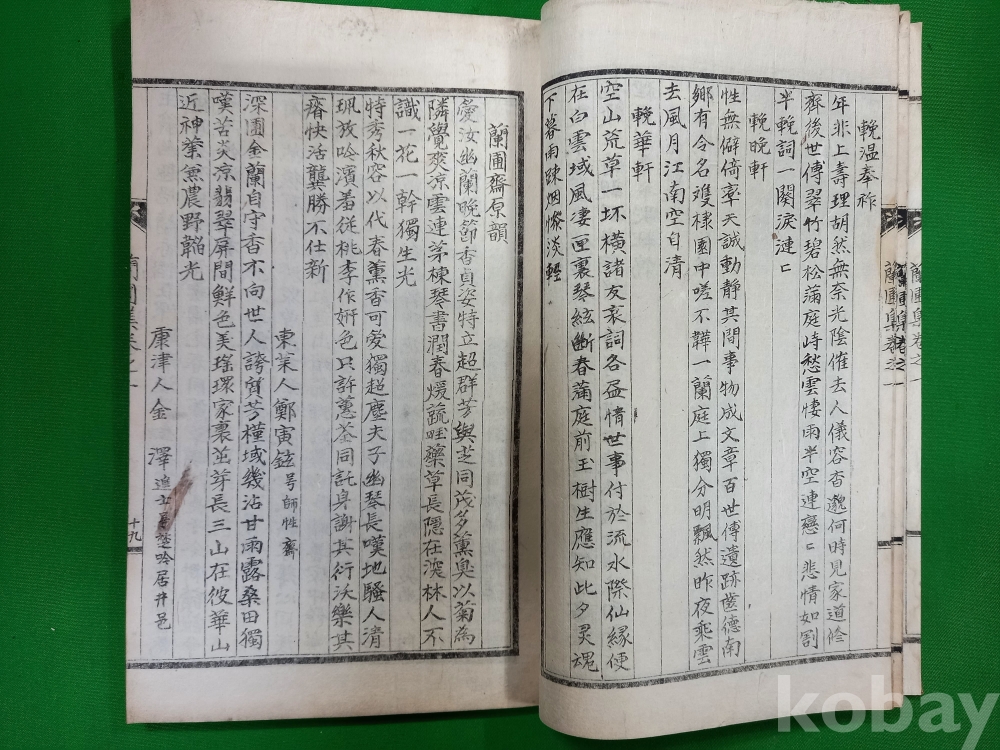 輓溫奉祚
年非上壽理胡然無奈光陰催去人儀容杳邈何時見家道修
齊後世傳翠竹碧松滿庭峙愁雲悽雨半空連戀〻悲情如割
半輓詞一闋淚漣〻
輓晚軒
性無僻倚率天誠動靜其間事物成文章百世傳遺跡舊德南
鄉有令名雙棣園中嗟不韡一蘭庭上獨分明飄然昨夜乘雲
去風月江南空自清
輓華軒
空山荒草一坏橫諸友哀詞各盡情世事付於流水際仙緣便
在白雲域風凄匣裏琴絃斷春滿庭前玉樹生應知此夕灵魂
下暮雨踈烟慘淡輕
蘭圃齋原韻
愛汝幽蘭晚節香貞姿特立超群芳與芝同茂多薰臭以菊為
隣覺爽凉雲連茅棟琴書潤春煖蔬畦藥草長隱在深林人不
識一花一幹獨生光
特秀秋容以代春薰香可愛獨超塵夫子幽琴長嘆地騷人清
珮放吟濱羞從桃李作妍色只許蕙荃同託身謝其行沃樂其
瘠快活龔勝不仕新
東萊人鄭寅鉉 号師性齋
深圃金蘭自守香不向世人誇質芳槿域幾沾甘雨露桑田獨
嘆苦炎凉翡翠屏間鮮色美瑤環家裏茁芽長三山在彼華山
近神藥無農野韜光
康津人金 澤 進士 吟居井邑
蘭圃集卷之一
十九
蘭圃集卷之一
蘭圃集卷之一
kobay